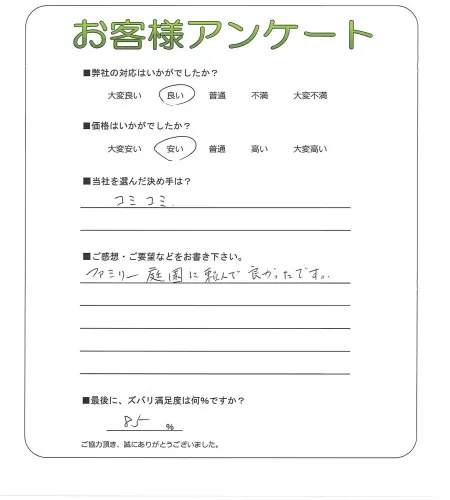 お客様アンケート
■弊社の対応はいかがでしたか？
大変良い 良い 普通 不満 大変不満
■価格はいかがでしたか？
大変安い 安い 普通 高い 大変高い
■当社を選んだ決め手は？
コミコミ.
■ご感想・ご要望などをお書き下さい。
ファミリー庭園に頼んで良かったです。
■最後に、ズバリ満足度は何%ですか？
85 %
ご協力頂き、誠にありがとうございました。